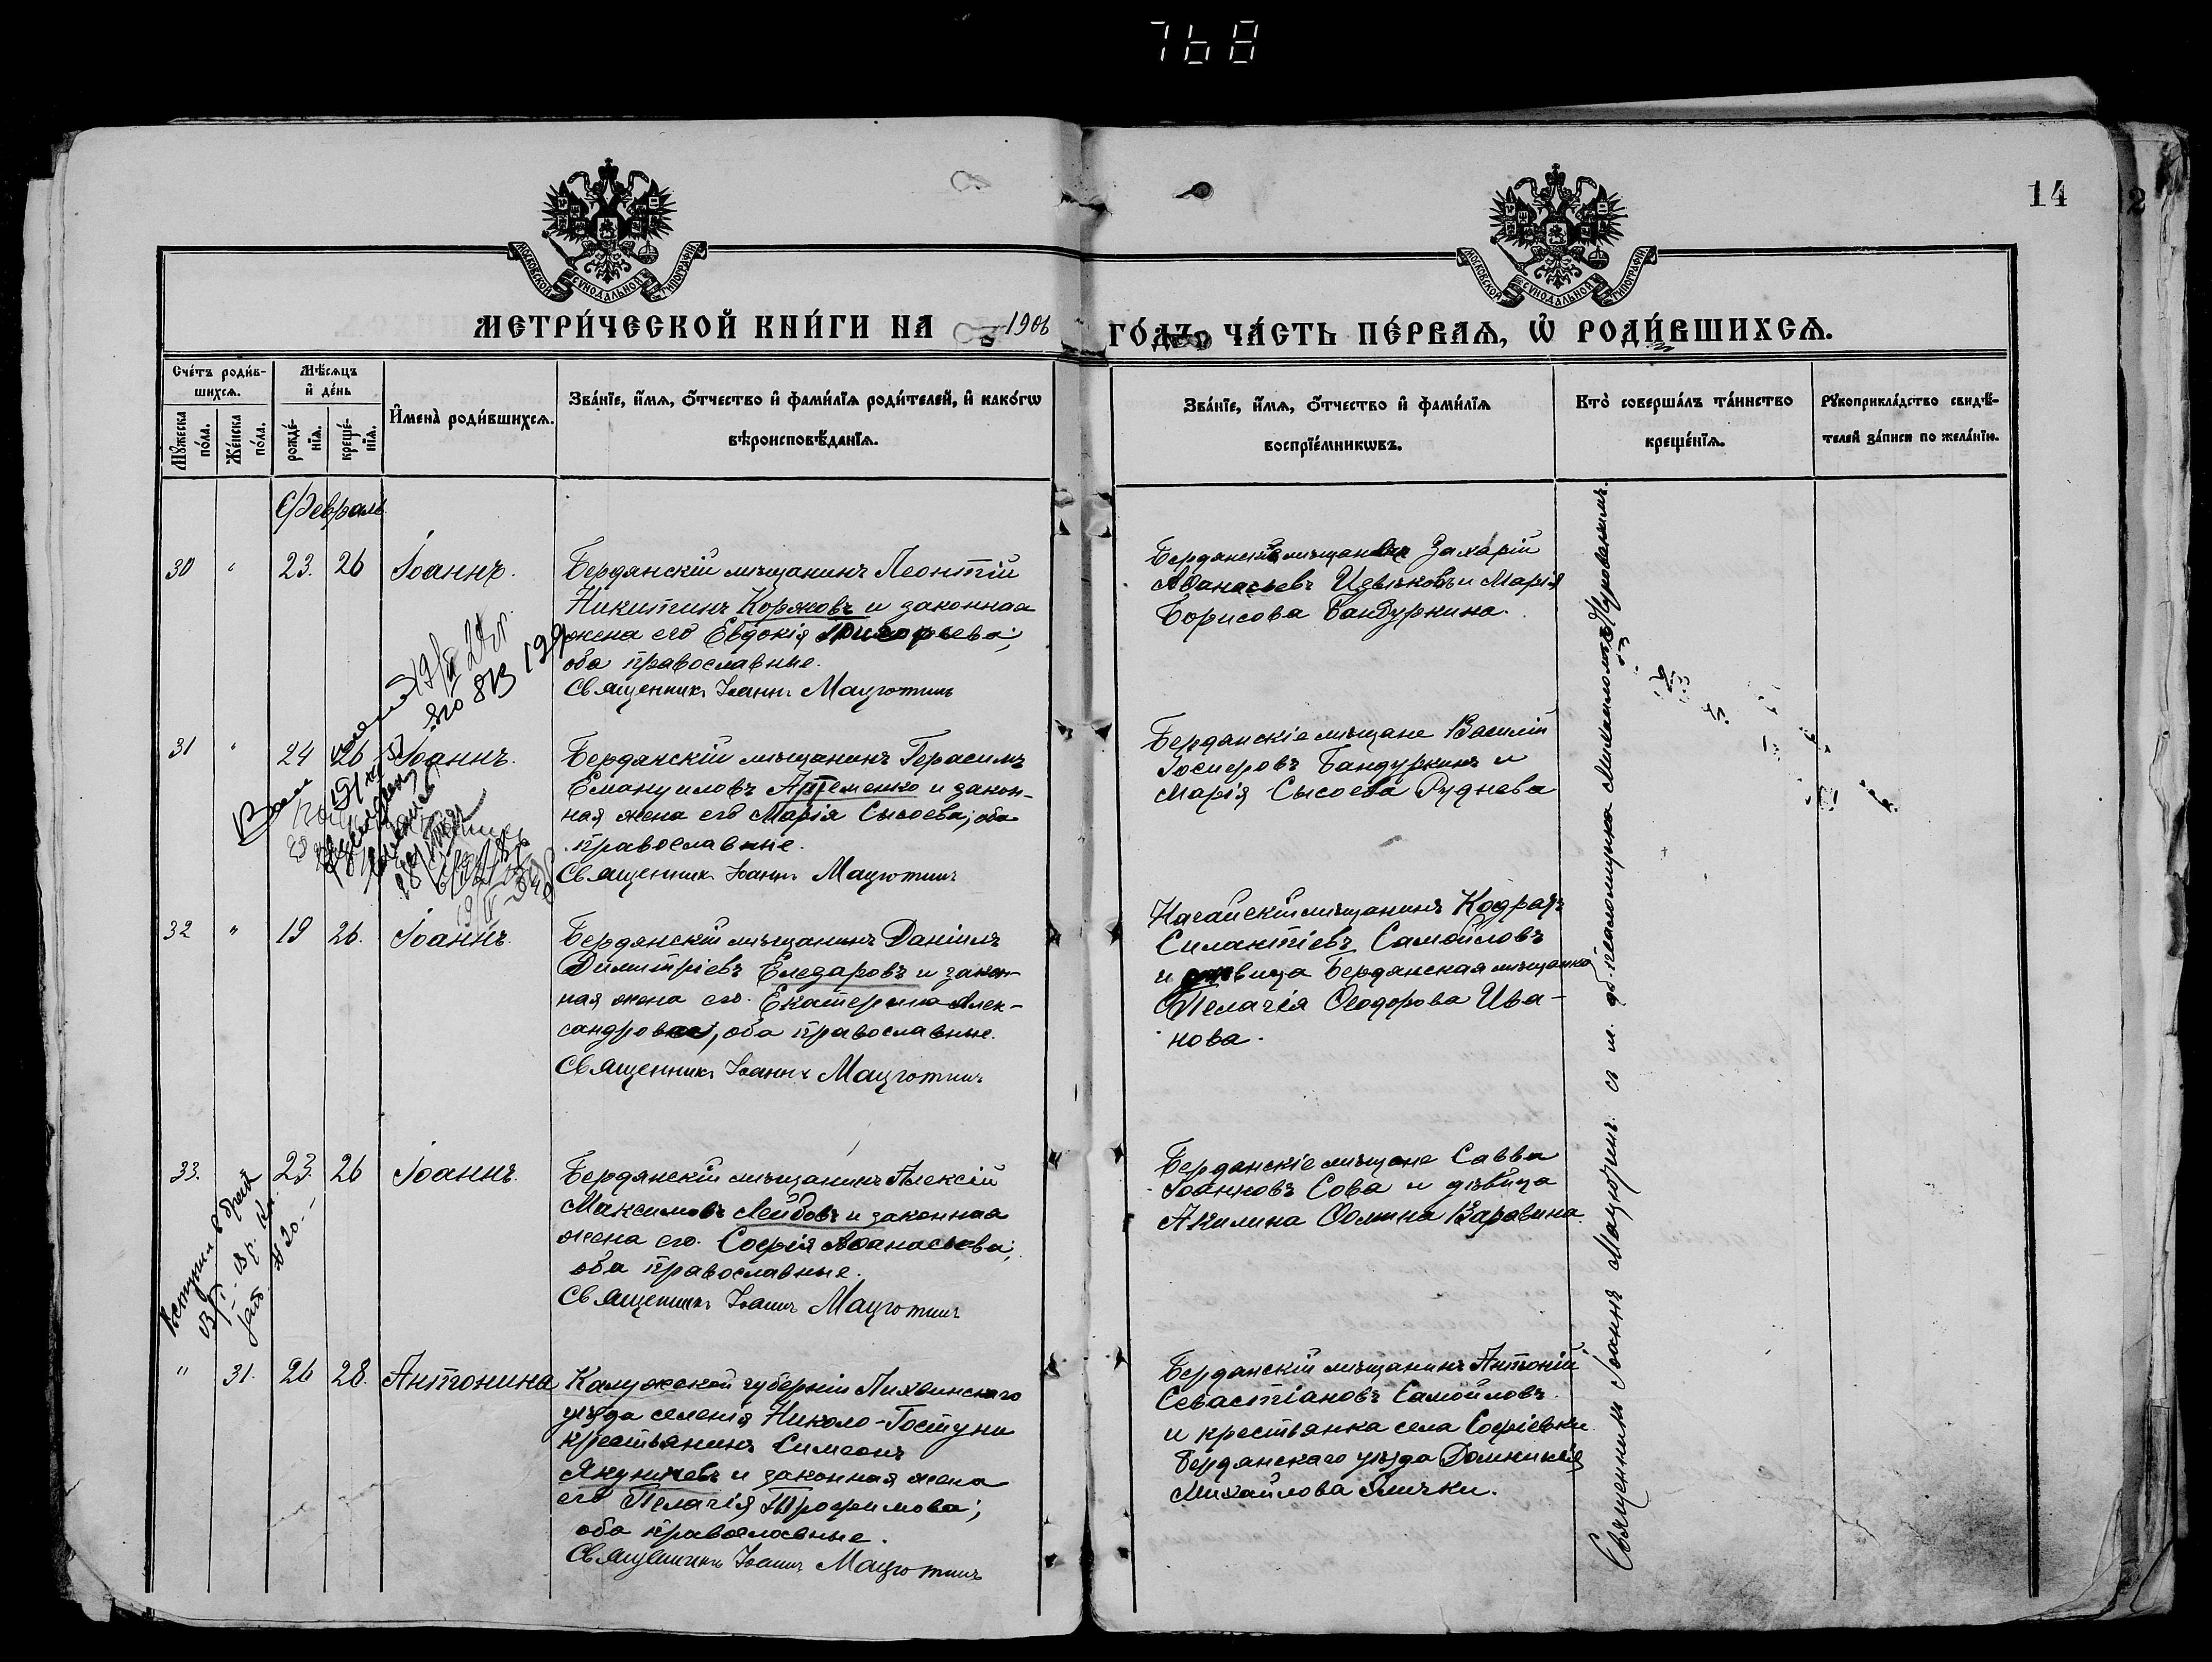 768
14
2
МОСКОВСКОЙ СѴНОДАЛЬНОЙ ТИПОГРАФІИ.
МОСКОВСКОЙ СѴНОДАЛЬНОЙ ТИПОГРАФІИ.
МЕТРИ́ЧЕСКОЙ КНИ́ГИ НА 1906 ГО́ДЪ, ЧА́СТЬ ПЕ́РВАѦ, Ѡ РОДИ́ВШИХСѦ.
Сче́тъ роди́в-
шихсѧ.
Мꙋ́жеска по́ла.
Же́нска по́ла.
Мѣ́сѧцъ
и҆ де́нь
рожде́-
нїѧ.
креще́-
нїѧ.
И҆мена̀ роди́вшихсѧ.
Зва́нїе, и҆́мѧ, ѻ҆́тчество и҆ фами́лїѧ роди́телей, и҆ како́гѡ
вѣроисповѣ́данїѧ.
Зва́нїе, и҆́мѧ, ѻ҆́тчество и҆ фами́лїѧ
воспрїе́мникѡвъ.
Кто̀ соверша́лъ та́инство
креще́нїѧ.
Рꙋкоприкла́дство свидѣ́-
телей за́писи по жела́нїю.
Февраль
30 " 23. 26 Іоаннъ.
Бердянскій мѣщанинъ Леонтій
Никитинъ Коряковъ и законная
жена его Евдокія Григорьева;
оба православные.
Священникъ Іоаннъ Мацютинъ
Захарій
Аѳанасьевъ Извѣковъ и Марія
Борисова Бандуркина.
31 " 24 26 Іоаннъ.
Бердянскій мѣщанинъ Герасимъ
Емануиловъ Артеменко и закон-
ная жена его Марія Сысоева; оба
православные.
Священникъ Іоаннъ Мацютинъ
Бердянскіе мѣщане Василій
Іосифовъ Бандуркинъ и
Марія Сысоева Руднева
32 " 19 26. Іоаннъ.
Бердянскій мѣщанинъ Даніилъ
Димитріевъ Еледаровъ и закон-
ная жена его Екатерина Алек-
сандрова, оба православные.
Священникъ Іоаннъ Мацютинъ
Ногайскій мѣщанинъ Кодратъ
Силантіевъ Самойловъ
и дѣвица Бердянская мѣщанка
Пелагія Ѳеодорова Ива-
нова.
33. 23. 26 Іоаннъ.
Бердянскій мѣщанинъ Алексій
Максимовъ Лейбовъ и законная
жена его Софія Аѳанасьева;
оба православные.
Священникъ Іоаннъ Мацютинъ
Бердянскіе мѣщане Савва
Іоанновъ Сова и дѣвица
Акилина Ѳомина Варавина.
Вступил в брак
" 31. 26 28. Антонина
Калужской губерніи Лихвинскаго
уѣзда селенія Николо-Гостуни
крестьянинъ Симеонъ
Якуничевъ и законная жена
его Пелагія Трофимова;
оба православные.
Священникъ Іоаннъ Мацютинъ
Бердянскій мѣщанинъ Антоній
Севастіановъ Самойловъ.
и крестьянка села Софіевки
Бердянскаго уѣзда Домникія
Михайлова
Священникъ Іоаннъ Мацютинъ съ и. д. псаломщика Михаиломъ